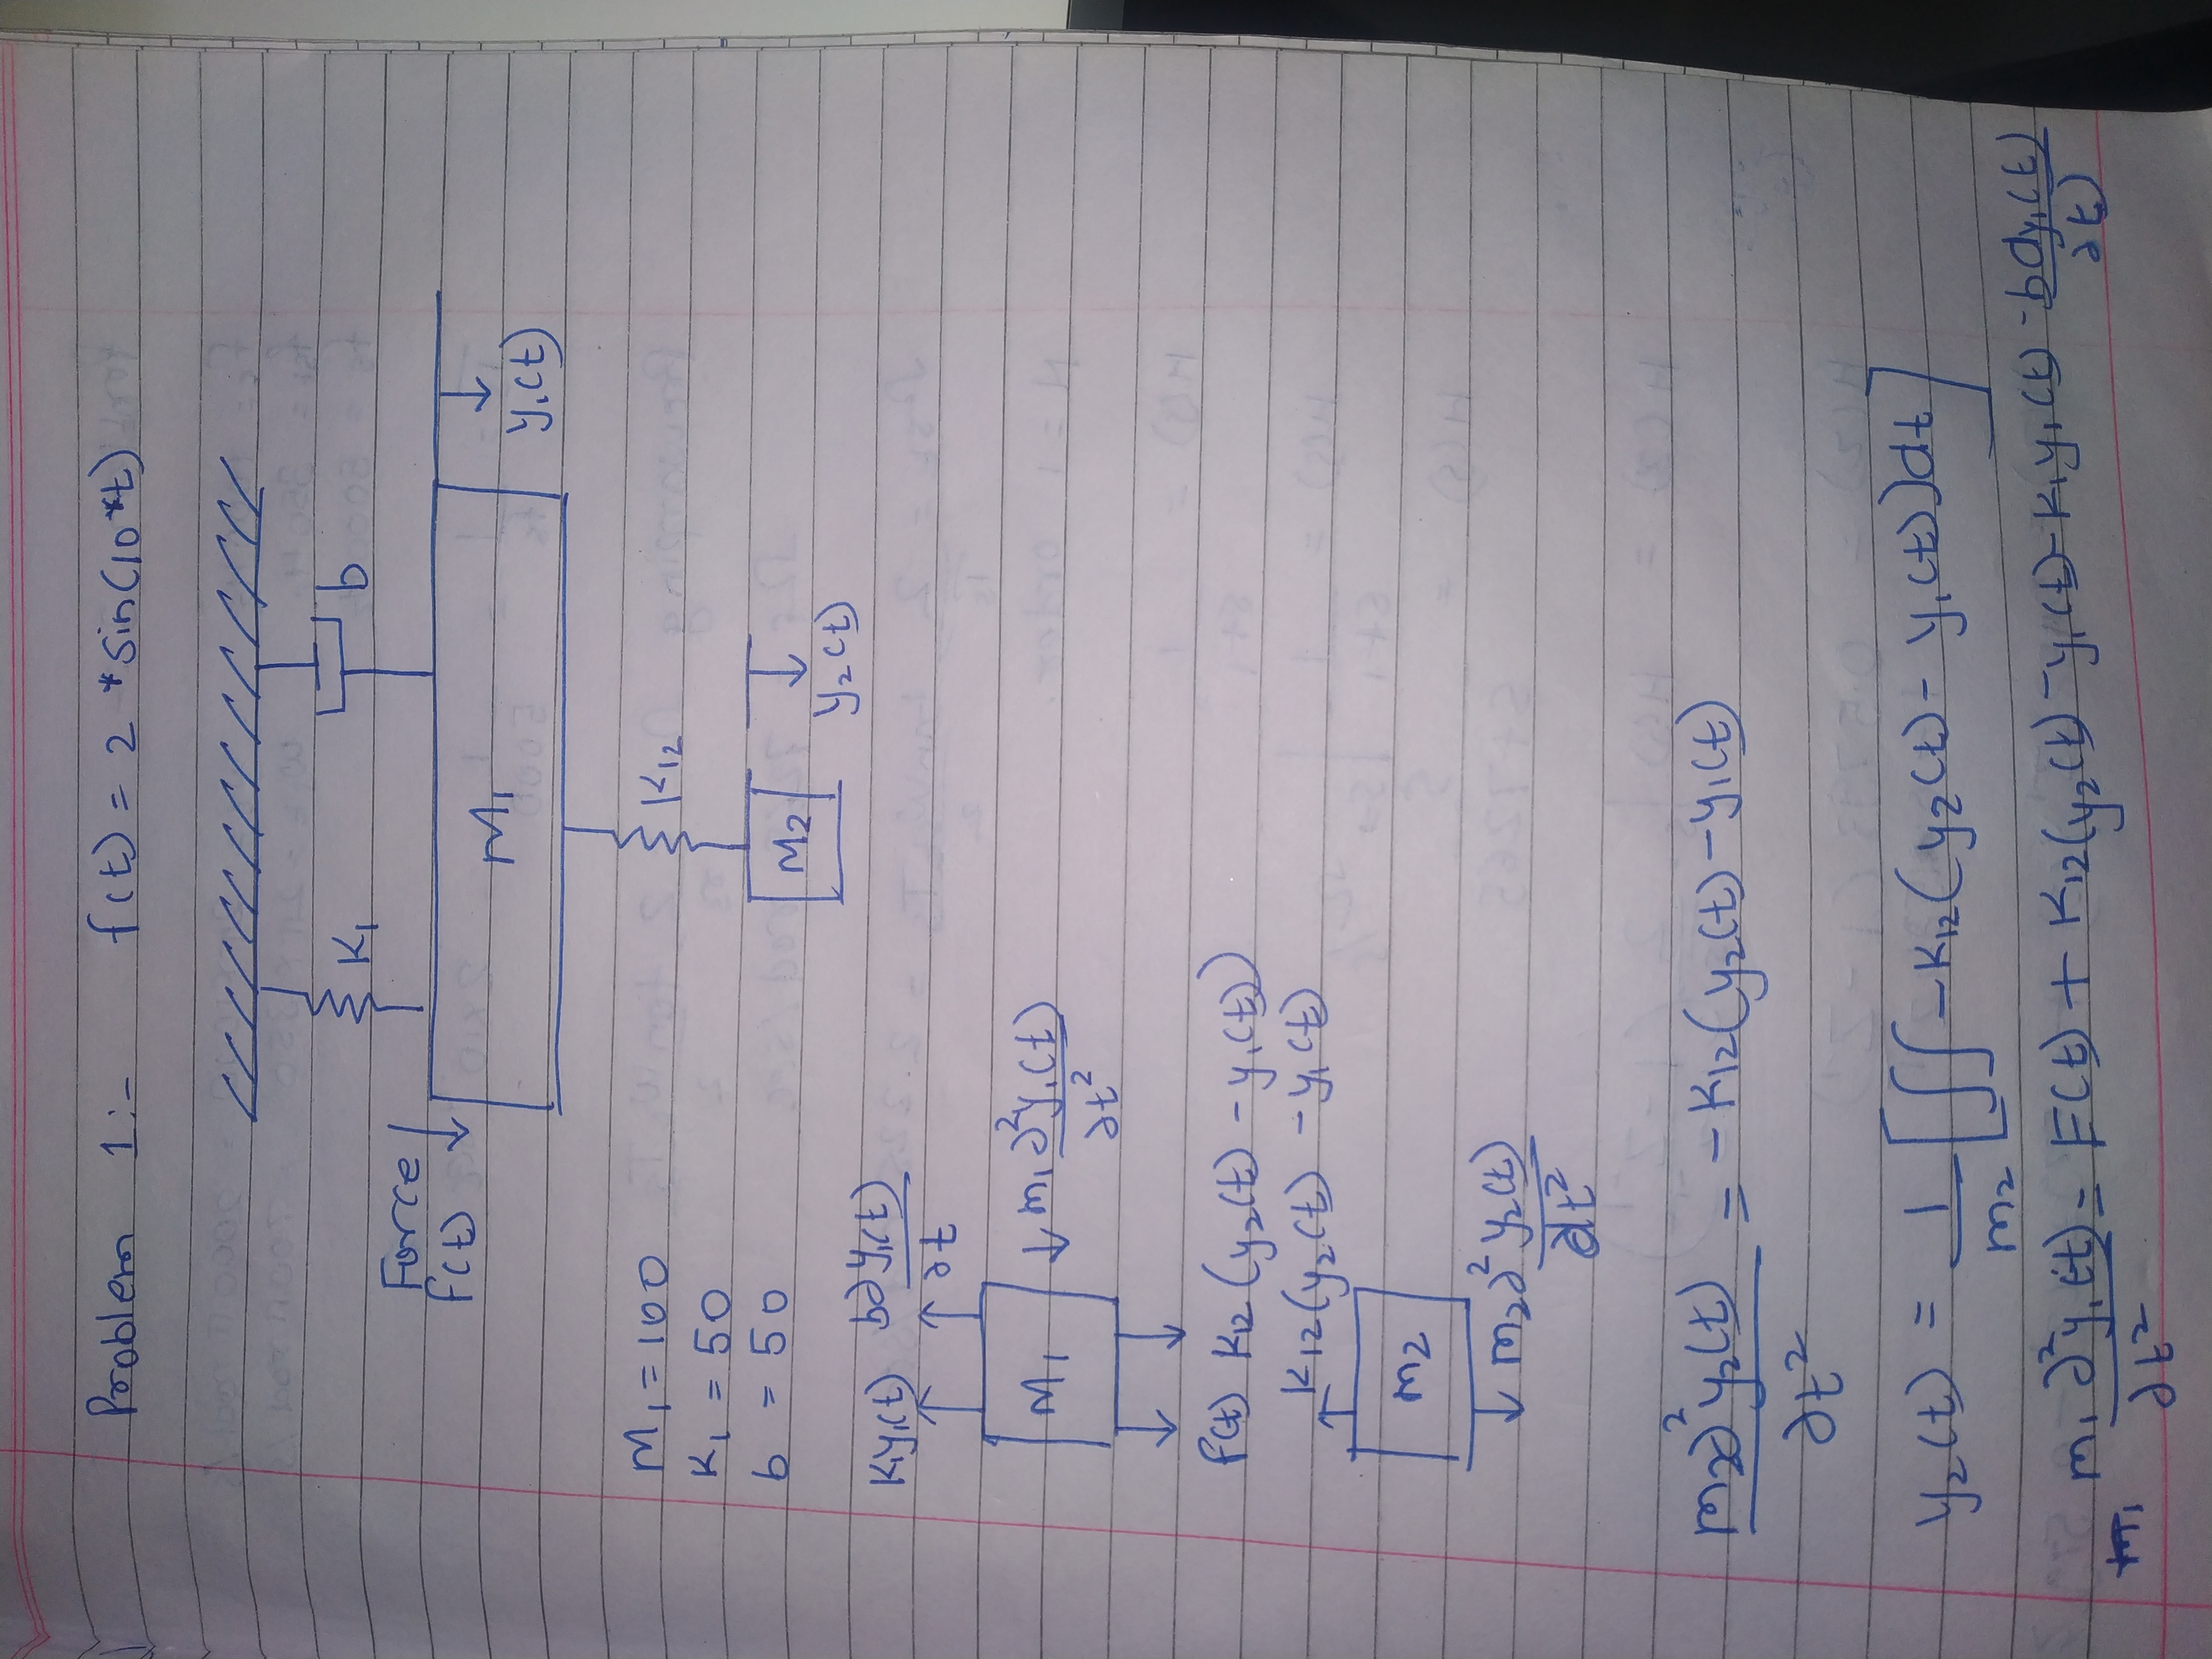 Problem 1:- f(t) = 2 * sin(10*t)
K1
b
Force
f(t)
M1
y1(t)
M1 = 100
K1 = 50
b = 50
K12
M2
y2(t)
K1y1(t) b∂y1(t)
∂t
M1 m1 ∂²y1(t)
∂t²
f(t) K12 (y2(t) - y1(t))
K12(y2(t) - y1(t)
m2
m2∂² y2(t)
∂t²
m2∂²y2(t) = - K12(y2(t) - y1(t)
∂t²
y2(t) = 1 [∫∫ -K12(y2(t) - y1(t))dt]
m2
m1 ∂²y1(t) = F(t) + K12(y2(t) - y1(t) - K1y1(t) - bdy1(t)
∂t² ∂t)